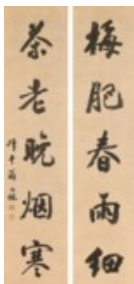 梅肥春雨細
茶老晚烟寒